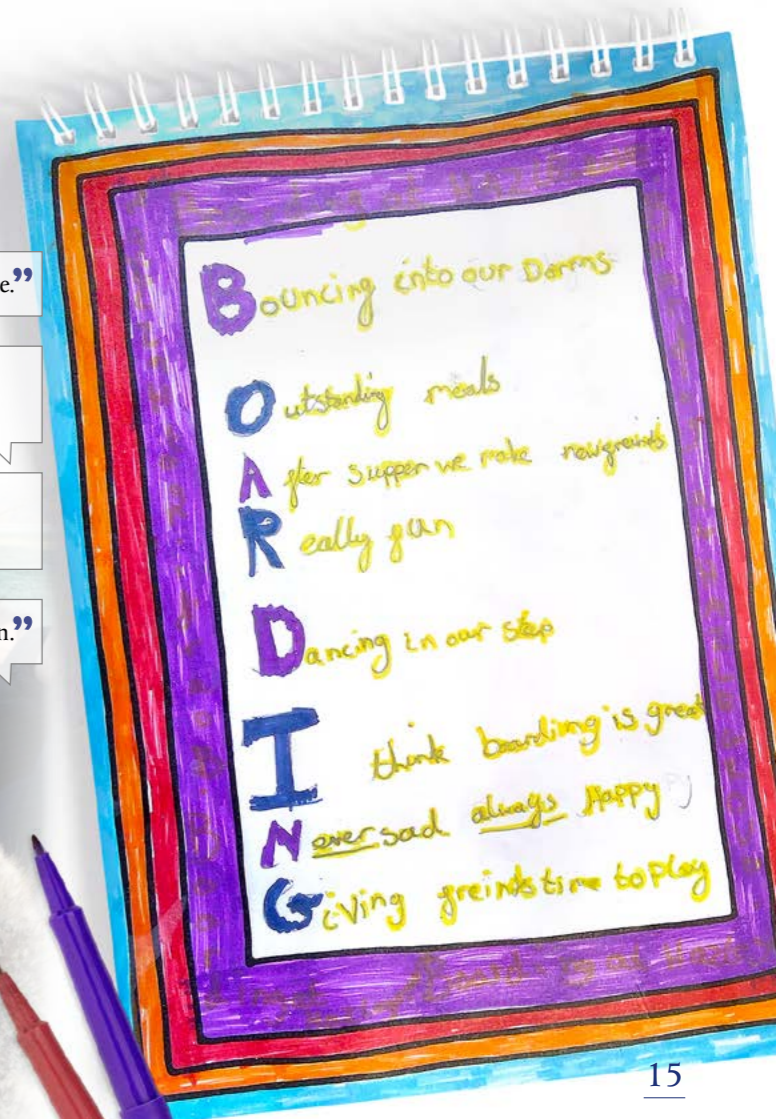 e.”
n.”
Bouncing into our Dorms
Outstanding meals
After supper we make new greinds
Really gun
Dancing in our step
I think boarding is great
Never sad always Happy
Giving greinds time to Play
15